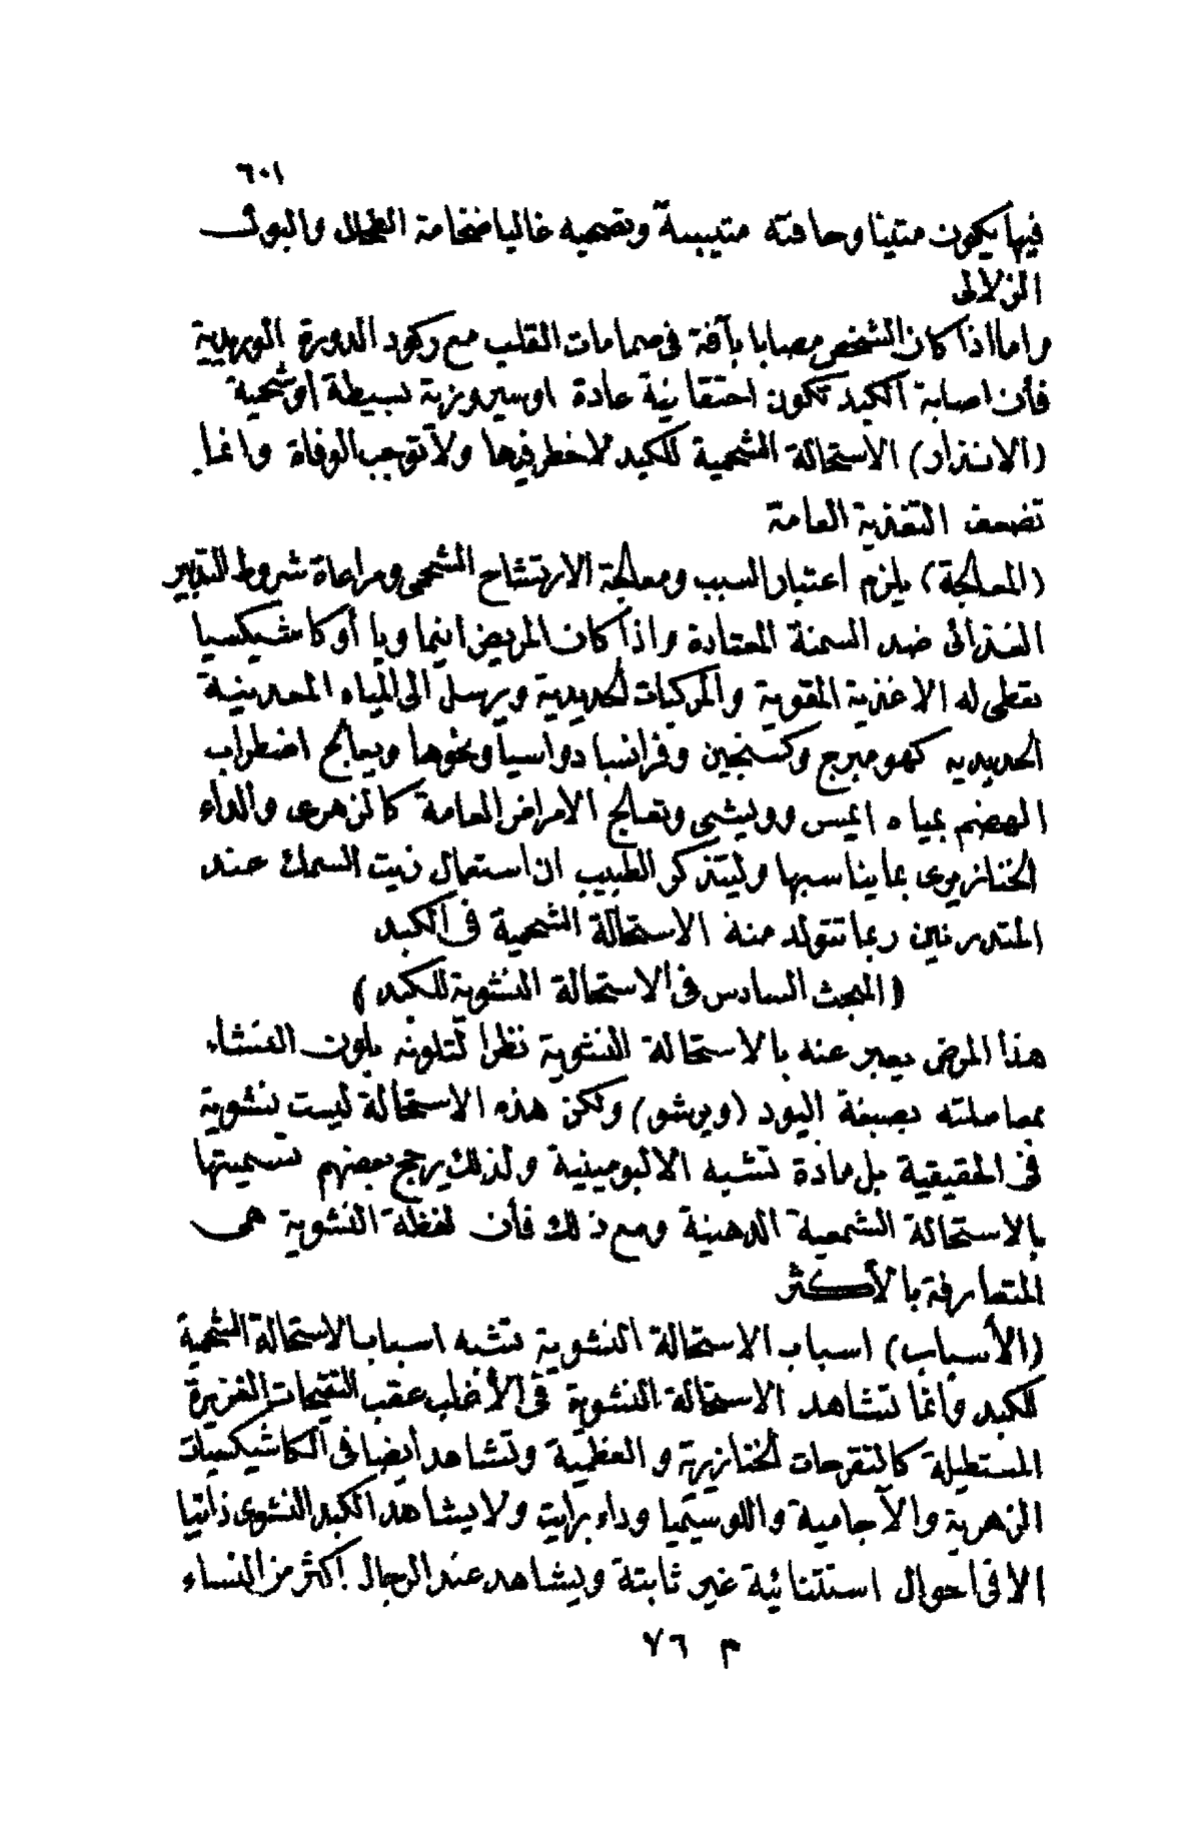 ٦٠١
فيها يكون متينا وحافته متيبسة وتصحبه غالبا ضخامة الطحال والبول
الزلالى
واما اذا كان الشخص مصابا بآفة فى صمامات القلب مع ركود الدورة الوريدية
فأن اصابة الكبد تكون احتقانية عادة اوسيروزية بسيطة أوشحمية
(الانذار) الاستحالة الشحمية للكبد لاخطر فيها ولا توجب الوفاة وانما
تضعف التغذية العامة
(المعالجة) يلزم اعتبار السبب ومعالجة الارتشاح الشحمى ومراعاة شروط التدبير
الغذائى ضد السمنة المعتادة واذا كان المريض انيماويا أو كاشيكسيا
تعطى له الاغذية المقوية والمركبات الحديدية ويرسل الى المياه المعدينية
الحديديه كهومبرج وكسنجين وفرانسبا دواسبا ونحوها ويعالج اضطراب
الهضم بمياه ايمس وويشى وتعالج الامراض العامة كالزهرى والداء
الخنازيرى بما يناسبها وليتذكر الطبيب ان استعمال زيت السمك عند
المتدرنين ربما تتولد منه الاستحالة الشحمية فى الكبد
(المبحث السادس فى الاستحالة النشوية للكبد)
هذا المرض يعبر عنه بالاستحالة النشوية نظرا لتلونه بلون النشاء
بمعاملته بصبغة اليود (ويرشو) ولكن هذه الاستحالة ليست نشوية
فى الحقيقية بل مادة تشبه الالبومينية ولذلك يرجح بعضهم تسميتها
بالاستحالة الشمعية الدهنية ومع ذلك فأن لفظة النشوية هى
المتعارفة بالأكثر
(الأسباب) اسباب الاستحالة النشوية تشبه اسباب الاستحالة الشحمية
للكبد وانما تشاهد الاستحالة النشوية فى الأغلب عقب التقيحات الغزيرة
المستطيلة كالتقرحات الخنازيرية والعظمية وتشاهد أيضا فى الكاشيكسيات
الزهرية والآجامية واللوسيميا وداء برايت ولا يشاهد الكبد النشوى ذاتيا
الا فى احوال استثنائية غير ثابتة ويشاهد عند الرجال أكثر من النساء
م ٧٦